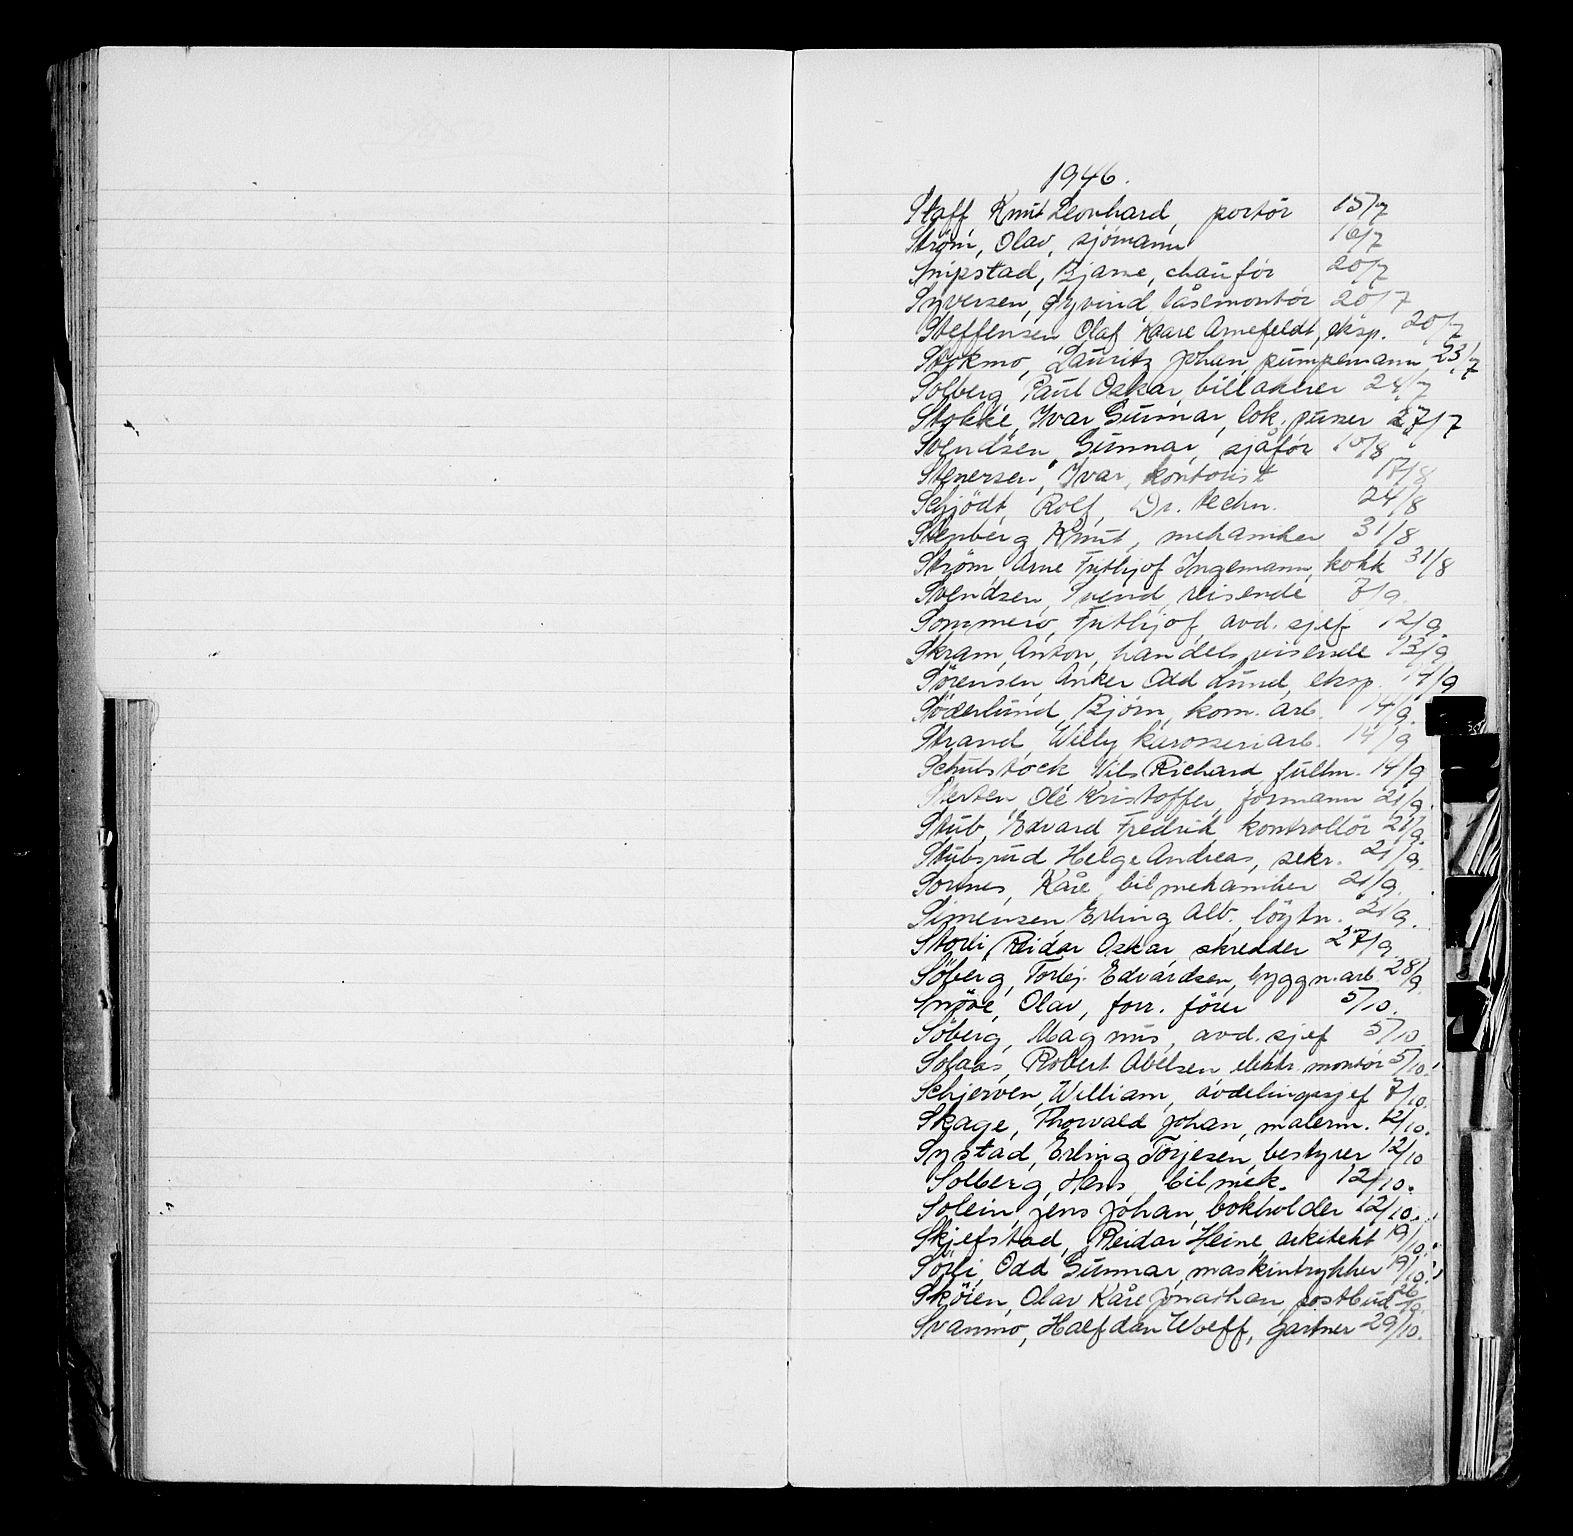 1946.
Staff Knut Leonhard, portör 15/7
Strøm, Olav, sjömann 16/7
Snipstad, Bjarne, chauför 20/7
Syversen, Øyvind, låsemontör 20/7
Steffensen Olaf Kaare Arnefeldt, eksp. 20/7
Stokmo, Lauritz Johan, pumpemann 23/7
Solberg, Paul Oskar, billakerer 24/7
Stokke, Ivar Gunnar, lok. pusser 27/7
Svendsen, Gunnar, sjåför 10/8
Stenersen, Ivar, kontorist 17/8
Schjödt, Rolf, Dr. techn. 24/8
Stenberg Knut, mekaniker 31/8
Strøm Arne Frithjof Ingemann, kokk 31/8
Svendsen, Svend, reisende 7/9.
Sommerv, Frithjof, avd. sjef 12/9.
Skram, Anton, handelsreisende 13/9
Sörensen, Anker Odd Lund, eksp. 14/9
Söderlund, Björn, kom. arb. 14/9.
Strand, Willy karosseriarb. 14/9
Schulstock, Nils Richard, fullm. 14/9
Sletten, Ole Kristoffer, formann 21/9.
Stub, Edvard Fredrik kontrollör 21/9.
Stubsrud, Helge Andreas, sekr. 21/9.
Sornes, Kåre, bilmekaniker 21/9.
Simensen Erling Alb. löytn. 21/9.
Storli, Reidar Oskar skredder 27/9
Söberg, Torlej. Edvardsen, byggn.arb 28/9
Snöve, Olav, forr. förer 5/10.
Söberg, Magnus, avd. sjef 5/10.
Solaas, Robert Abelsen elektr. montör 5/10.
Schjerven, William, avdelingssjef 7/10.
Skage, Thorvald Johan, malerm. 12/10.
Systad, Erling Torjesen, bestyrer 12/10
Solberg, Hans bilmek. 12/10.
Solein, Jens Johan, bokholder 12/10.
Skjefstad, Reidar Heine, arkitekt 19/10.
Sörli, Odd Gunnar, maskintrykker 19/10.
Sköien, Olav Kåre Jonathan, postbud 26/10.
Svanmo, Halfdan Wolff, gartner 29/10.